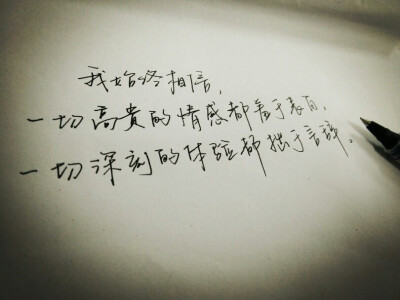 我始终相信，
一切高貴的情感都羞于表白，
一切深刻的体验都拙于言辞。